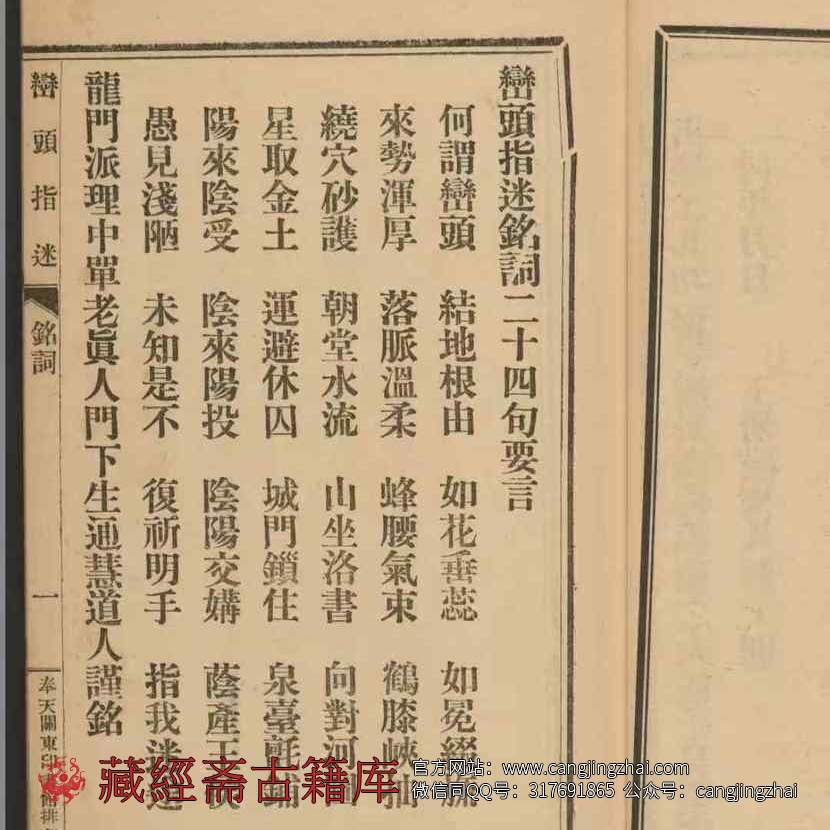 巒頭指迷銘詞二十四句要言
何謂巒頭 結地根由 如花垂蕊 如冕綴旒
來勢渾厚 落脈溫柔 蜂腰氣束 鶴膝峽抽
繞穴砂護 朝堂水流 山坐洛書 向對河
星取金土 運避休囚 城門鎖住 泉臺氈鋪
陽來陰受 陰來陽投 陰陽交媾 蔭產王
愚見淺陋 未知是不 復祈明手 指我迷
龍門派理中單老眞人門下生通慧道人謹銘
巒頭指迷 銘詞 一 奉天關東印書館排
藏經斋古籍库
官方网站：www.cangjingzhai.com
微信同QQ号：317691865 公众号：cangjingzhai